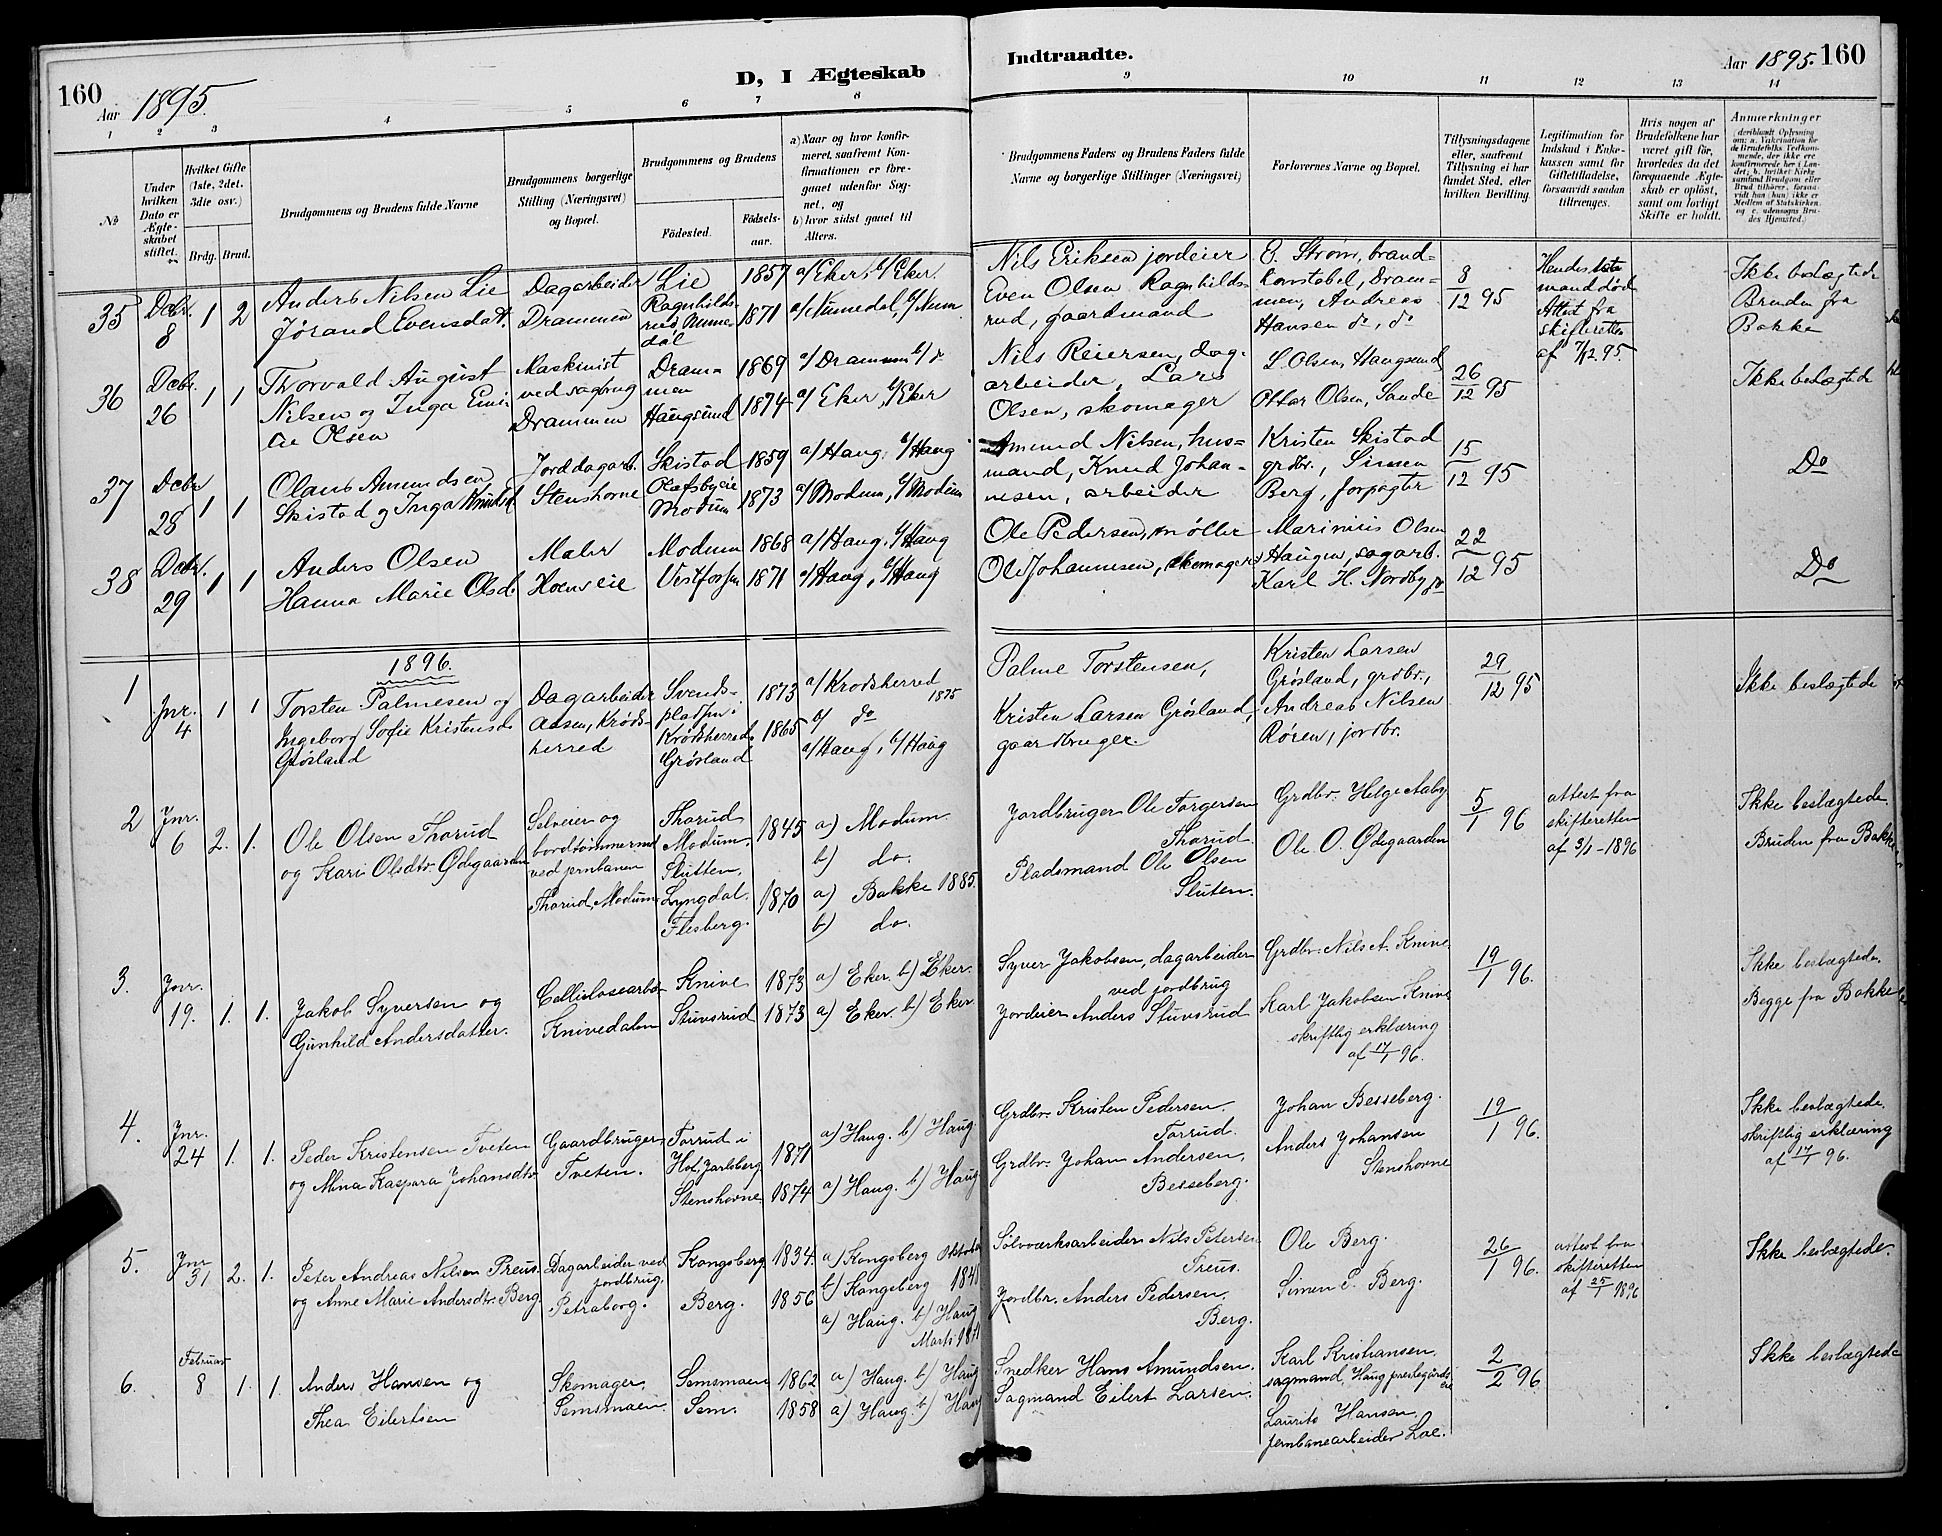 160
Aar 1895.
D, I Ægteskab
1 2 3 4 5 6 7 8
№
Under hvilken Dato er Ægteskabet stiftet.
Hvilket Gifte (1ste, 2det, 3die osv.)
Brdg. Brud.
Brudgommens og Brudens fulde Navne
Brudgommens borgerlige Stilling (Næringsvei) og Bopæl.
Brudgommens og Brudens
Fødested.
Fødselsaar.
a) Naar og hvor konfirmeret, saafremt Konfirmationen er foregaaet udenfor Sognet, og
b) hvor sidst gaaet til Alters.
35 Dcbr. 8 1 2
Anders Nilsen Lie
Jørand Evensdatt.
Dagarbeider
Drammen
Lie
Ragnhildsrud, Numedal
1857
1871
a/ Eker. b/ Eker.
a/ Numedal, b/ Num.
36 Dcbr. 26 1 1
Thorvald August
Nilsen og Inga Emilie Olsen
Maskinist
ved sagbrug
Drammen
Drammen
Haugsund
1869
1874
a/ Drammen b/ do
a/ Eker, b/ Eker
37 Dcbr 28 1 1
Olaus Amundsen
Skistad og Inga Knudsd.
Jorddagarb.
Stenshorne
Skistad
Olafsbyeie
Modum
1859
1873
a/ Haug, b/ Haug
a/ Modum, b/ Modum
38 Dcbr. 29 1 1
Anders Olsen
Hanna Marie Olsd.
Maler
Hoenseie
Modum
Vestfossen
1868
1871
a/ Haug, b/ Haug
a/ Haug, b/ Haug
1896.
1 Jnr. 4 1 1
Torsten Palmesen og
Ingeborg Sofie Kristensd.
Grøsland
Dagarbeider
Aasen, Krødsherred
Svendspladsen i
Krødsherred
Grøsland
1873
1865
a/ Krødsherred 1875
b/ do
a/ Haug, b/ Haug
2 Jnr. 6 2. 1.
Ole Olsen Thorud
og Kari Olsdtr. Ødegaarden
Selveier og
bordtømmermd
ved jernbanen
Thorud, Modum
Thorud
Modum.
Slutten,
Lyngdal.
Flesberg.
1845
1870
a) Modum
b) do.
a) Bakke 1885.
b) do.
3. Jnr. 19. 1. 1.
Jakob Syversen og
Gunhild Andersdatter.
Cellulosearbdr
Knivedalen
Knive
Stuvsrud
1873
1873
a) Eker. b) Eker.
a) Eker. b) Eker
4. Jnr. 24 1. 1.
Peder Kristensen Tveten
og Mina Kaspara Johansdtr.
Gaardbruger
Tveten.
Forrud i
Hof, Jarlsberg
Stenshorne
1871
1874
a) Haug. b) Haug.
a) Haug. b) Haug
5. Jnr 31 2. 1.
Peter Andreas Nilsen Preus.
og Anne Marie Andersdtr. Berg
Dagarbeider ved
jordbrug.
Petraborg.
Kongsberg
Berg.
1834.
1856
a) Kongsberg Oktober
b) Kongsberg 184
a) Haug. b) Haug
Marts 187
6. Februar 8 1. 1.
Anders Hansen og
Thea Eilertsen
Skomager.
Semsmoen.
Semsmoen
Sem.
1862
1858
a) Haug. b) Haug
a) Haug. b) Haug
Indtraadte.
Aar 1895. 160
9 10 11 12 13 14
Brudgommens Faders og Brudens Faders fulde Navne og borgerlige Stillinger (Næringsvei)
Forlovernes Navne og Bopæl.
Tillysningsdagene eller, saafremt Tillysning ei har fundet Sted, efter hvilken Bevilling.
Legitimation for Indskud i Enkekassen samt for Giftetilladelse, forsaavidt saadan tiltrænges.
Hvis nogen af Brudefolkene har været gift før, hvorledes da det foregaaende Ægteskab er opløst, samt om lovligt Skifte er holdt.
Anmerkninger
(deriblandt Oplysning om: a. Vakcination for de Brudefolks Vedkommende, der ikke ere konfirmerede her i Landet; b. hvilket Kirkesamfund Brudgom eller Brud tilhører, forsaavidt han (hun) ikke er Medlem af Statskirken, og c. udensogns Brudes Hjemsted.)
Nils Eriksen jordeier
Even Olsen Ragnhildsrud, gaardmand
E. Strøm, brandkonstabel, Drammen, Andreas
Hansen do, do
8/12 95
Hendes 1ste
mand død
Attest fra
skifteretten
af 7/12 95.
Ikke beslægtede
Bruden fra
Bakke
Nils Reiersen, dagarbeider, Lars
Olsen, skomager
L. Olsen, Haugsund
Ottar Olsen, Sande
26/12 95
Ikke beslægtede
Amund Nilsen, husmand, Knud Johannesen, arbeider
Kristen Skistad
grdbr., Simen
Berg, forpagter
15/12 95
Do
Ole Pedersen, møller
Ole Johannesen, skomager
Marinius Olsen
Haugen, sagarb.
Karl H. Nordby do
22/12 95
Do
Palme Torstensen,
Kristen Larsen Grøsland,
gaardbruger.
Kristen Larsen
Grøsland, grdbr.,
Andreas Nilsen
Røren, jordbr.
29/12 95
Ikke beslægtede
Jordbruger Ole Torgersen
Thorud.
Pladsmand Ole Olsen
Sluten.
Grdbr. Helge Aaby
Ole O. Ødegaarden
5/1 96
attest fra
skifteretten
af 3/1-1896
Ikke beslægtede
Bruden fra Bakke
Syver Jakobsen, dagarbeider
ved jordbrug
Jordeier Anders Stuvsrud
Grdbr. Nils A. Knive.
Karl Jakobsen Knive
skriftlig erklæring
af 17/1 96.
19/1 96.
Ikke beslægtede.
Begge fra Bakke
Grdbr. Kristen Pedersen.
Forrud.
Grdbr. Johan Andersen,
Besseberg.
Johan Besseberg.
Anders Johansen
Stenshorne
19/1 96.
Ikke beslægtede.
skriftlig erklæring
af 17/1 96.
Sølvværksarbeider Nils Petersen
Preus.
Jordbr. Anders Pedersen.
Berg.
Ole Berg.
Simen P. Berg.
26/1 96.
attest fra
skifteretten
af 25/1 1896
Ikke beslægtede.
Snedker Hans Amundsen.
Sagmand Eilert Larsen.
Karl Kristiansen.
sagmand, Haug prestegårdseie
Laurits Hansen
jernbanearbeider Loe.
2/2 96.
Ikke beslægtede